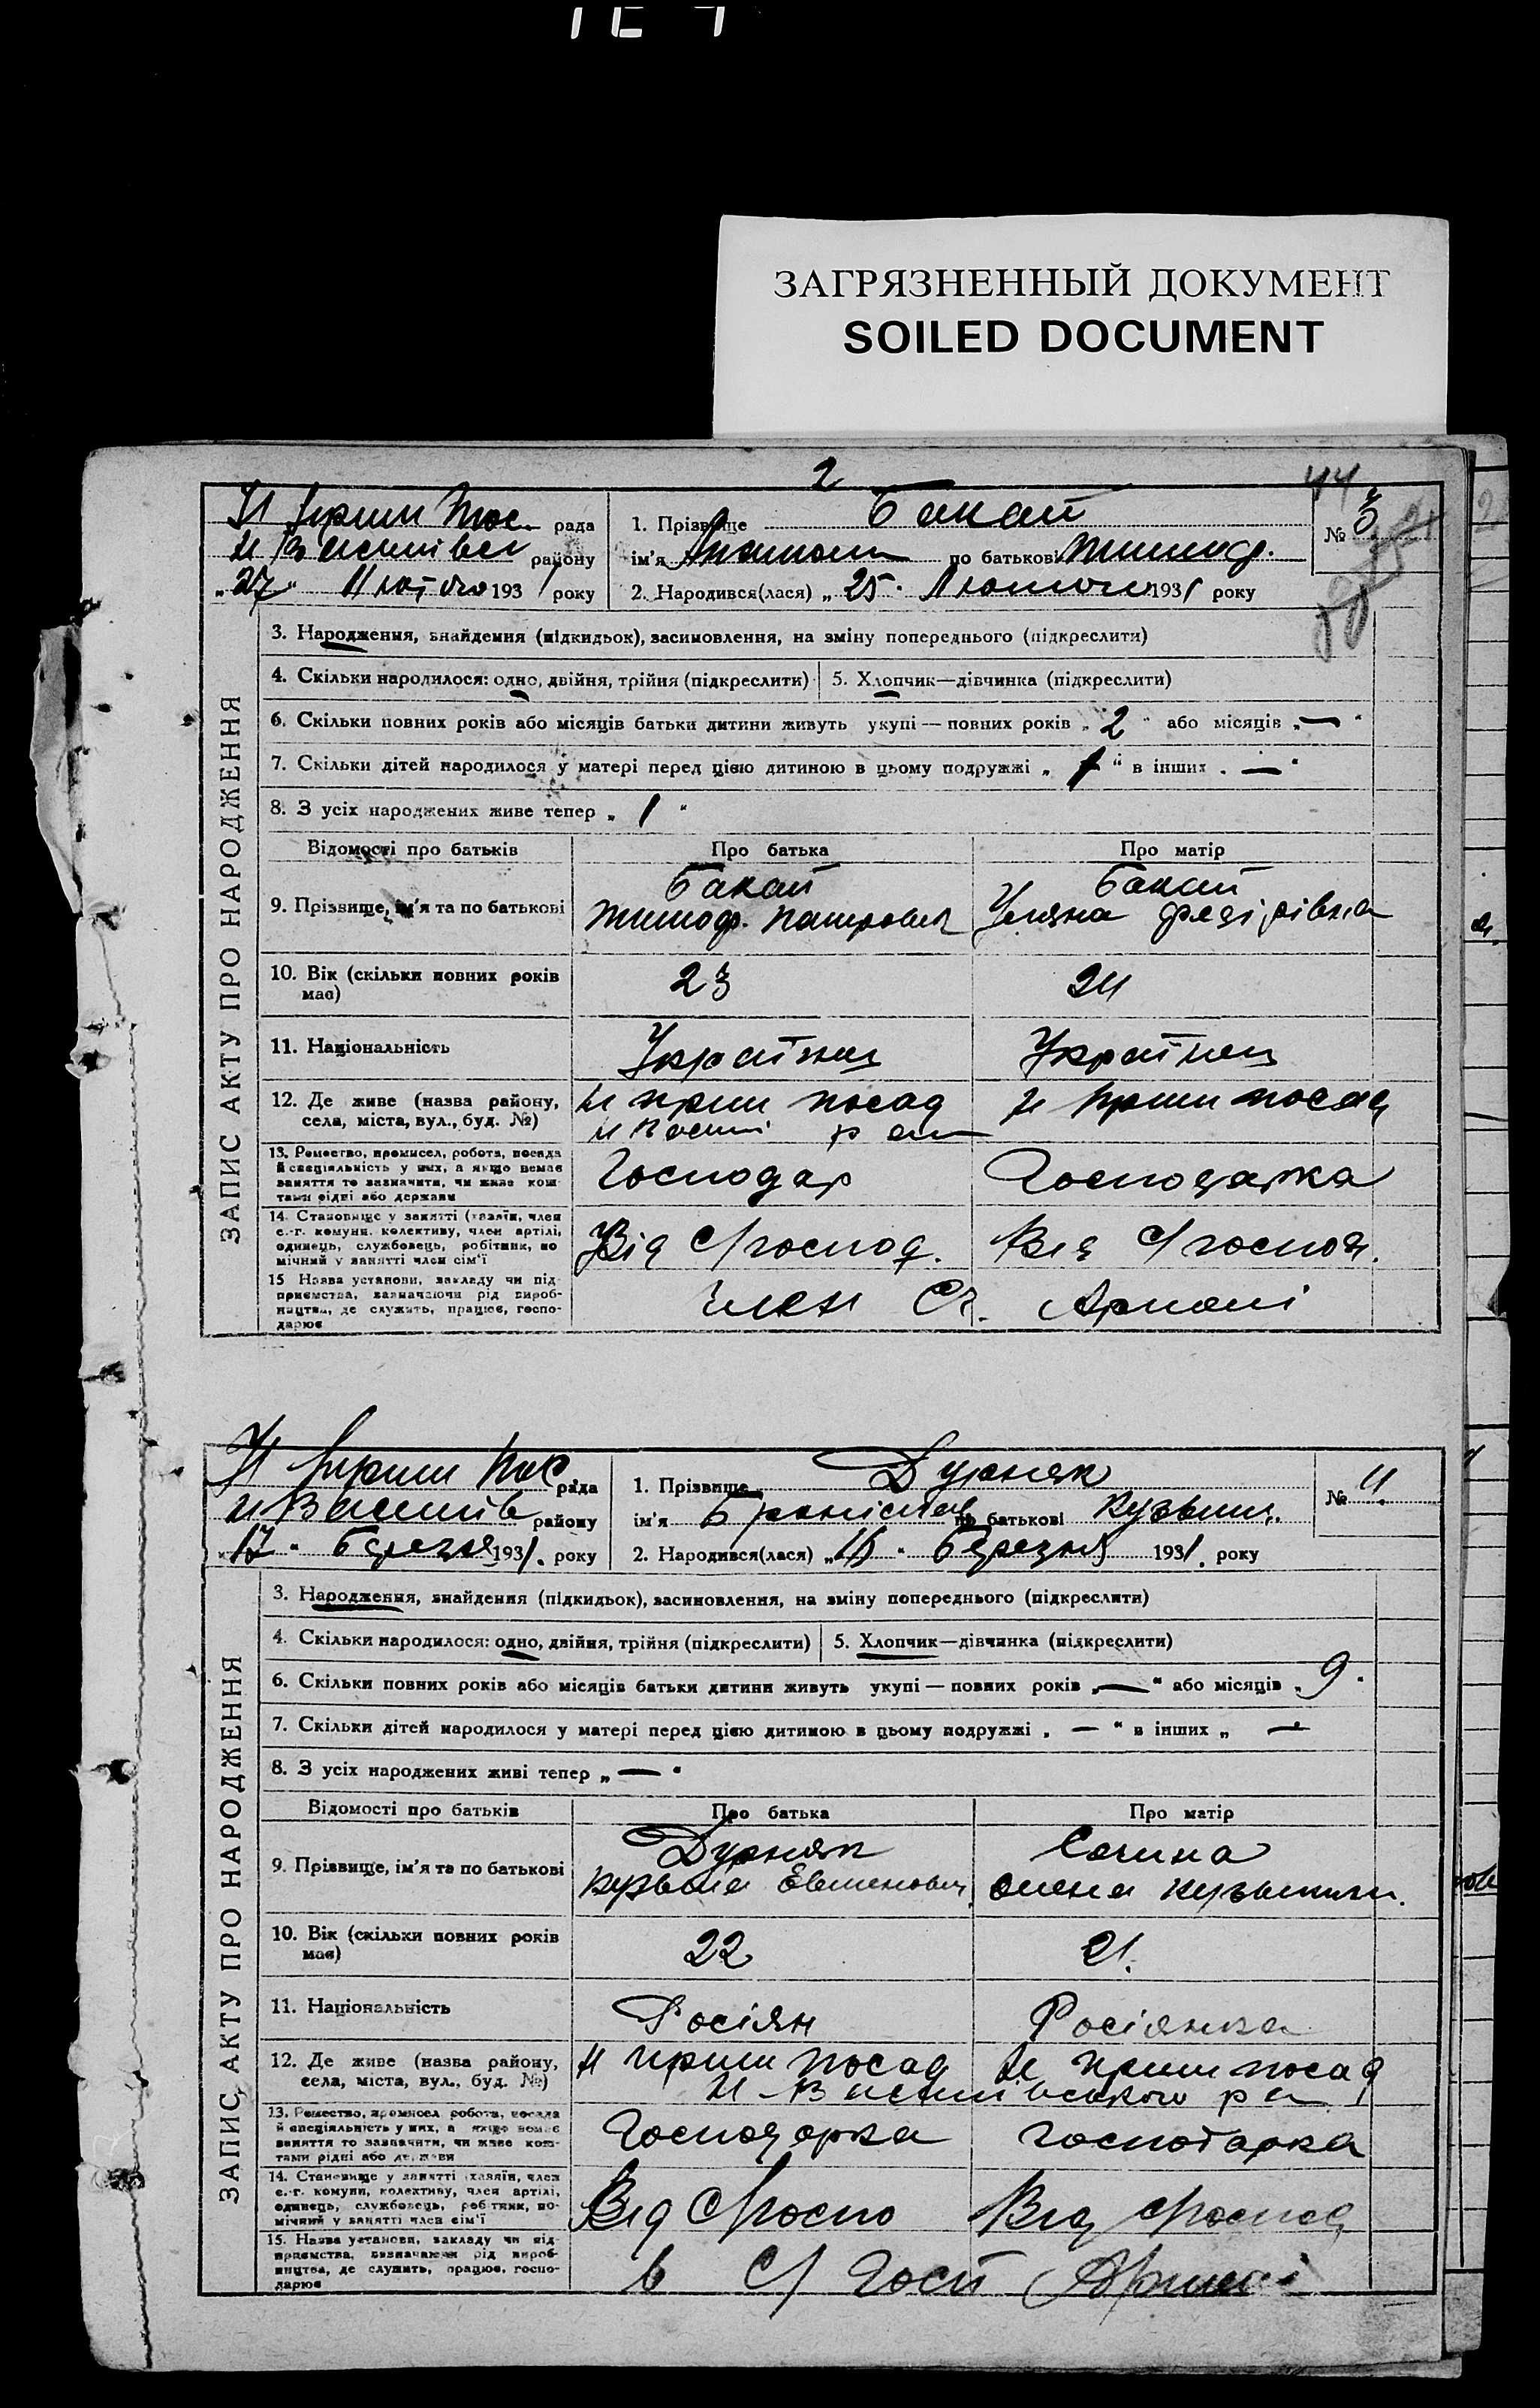 ЗАГРЯЗНЕННЫЙ ДОКУМЕНТ
SOILED DOCUMENT
2
44
рада
району
"27" Лютого 1931 року
1. Прізвище Бакай
ім'я по батькові Тимоф.
2. Народився(лася) „25" Лютого 1931 року
№ 3
ЗАПИС АКТУ ПРО НАРОДЖЕННЯ
3. Народження, знайдення (підкидьок), засиновлення, на зміну попереднього (підкреслити)
4. Скільки народилося: одно, двійня, трійня (підкреслити) 5. Хлопчик—дівчинка (підкреслити)
6. Скільки повних років або місяців батьки дитини живуть укупі — повних років „2" або місяців „—"
7. Скільки дітей народилося у матері перед цією дитиною в цьому подружжі „1" в інших „—"
8. З усіх народжених живе тепер „1"
Відомості про батьків Про батька Про матір
9. Прізвище, ім'я та по батькові
Бакай Бакай
Тимоф. Петрович Уляна
10. Вік (скільки повних років має) 23 24
11. Національність Українец Українец
12. Де живе (назва району, села, міста, вул., буд. №)
Н приш посад Н приш посад
13. Ремество, промисел, робота, посада й спеціяльність у них, а якщо немає заняття то зазначити, чи живе коштами рідні або держави
Господар Господарка
14. Становище у занятті (хазяїн, член с.-г. комуни, колективу, член артілі, одинець, службовець, робітник, помічний у занятті член сім'ї
Від С/господ. Від С/господ.
15 Назва установи, закладу чи підприємства, зазначаючи рід виробництва, де служить, працює, господарює
член Сг. Артілі
рада
Н Васил्ів району
"17" Березня 1931. року
1. Прізвище Дурняк
ім'я Броніслав по батькові Кузьмич.
2. Народився(лася) Березня 1931. року
№ 4.
ЗАПИС АКТУ ПРО НАРОДЖЕННЯ
3. Народження, знайдення (підкидьок), засиновлення, на зміну попереднього (підкреслити)
4. Скільки народилося: одно, двійня, трійня (підкреслити) 5. Хлопчик—дівчинка (підкреслити)
6. Скільки повних років або місяців батьки дитини живуть укупі — повних років „—" або місяців „9.
7. Скільки дітей народилося у матері перед цією дитиною в цьому подружжі „—" в інших „—
8. З усіх народжених живі тепер „—"
Відомості про батьків Про батька Про матір
9. Прізвище, ім'я та по батькові
Дурняк
Кузьма Євменович Олена
10. Вік (скільки повних років має) 22 21.
11. Національність Росіян Росіянка
12. Де живе (назва району, села, міста, вул., буд. №)
Н приш посад Н приш посад
13. Ремество, промисел, робота, посада й спеціяльність у них, а якщо немає заняття то зазначити, чи живе коштами рідні або держави
Господарка господарка
14. Становище у занятті (хазяїн, член с.-г. комуни, колективу, член артілі, одинець, службовець, робітник, помічний у занятті член сім'ї
Від С/госпо Від С/господ
15. Назва установи, закладу чи підприємства, зазначаючи рід виробництва, де служить, працює, господарює
в С/Госп Артілі